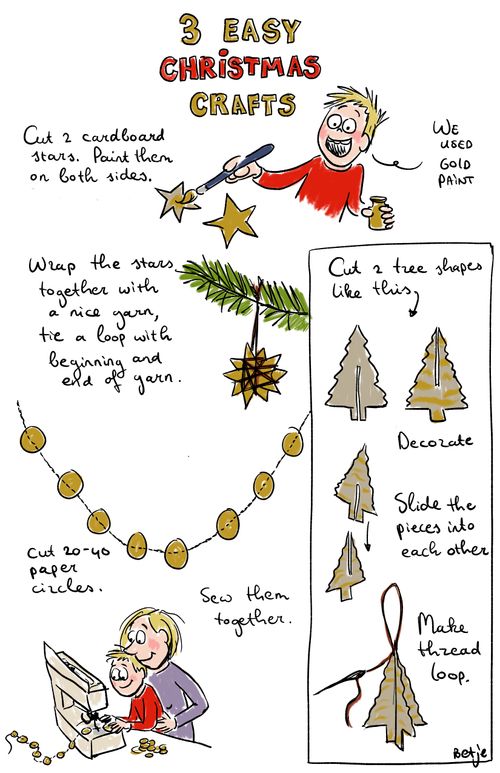 3 EASY
CHRISTMAS
CRAFTS
Cut 2 cardboard
stars. Paint them
on both sides.
WE
USED
GOLD
PAINT
Wrap the stars
together with
a nice yarn,
tie a loop with
beginning and
end of yarn.
Cut 20-40
paper
circles.
Sew them
together.
Cut 2 tree shapes
like this,
Decorate
Slide the
pieces into
each other
Make
thread
loop.
Betje